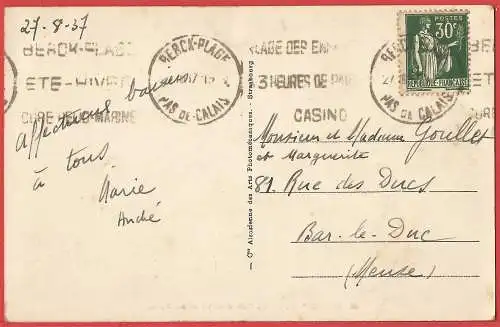 27-8-37
BERCK-PLAGE
ETE-HIVER
CURE HELIO-MARINE
BERCK-PLAGE
PAS DE CALAIS
PLAGE DES
3 HEURES DE
CASINO
BERCK-
27
PAS DE CALAIS
POSTES
30c
REPUBLIQUE FRANÇAISE
BER
ETE
CURE
Affectueux baisers
à tous
Marie
André
— Cie Alsacienne des Arts Photomécaniques. - Strasbourg
Monsieur et Madame Goullet
et Marguerite
81. Rue des Ducs
Bar-le-Duc
(Meuse)